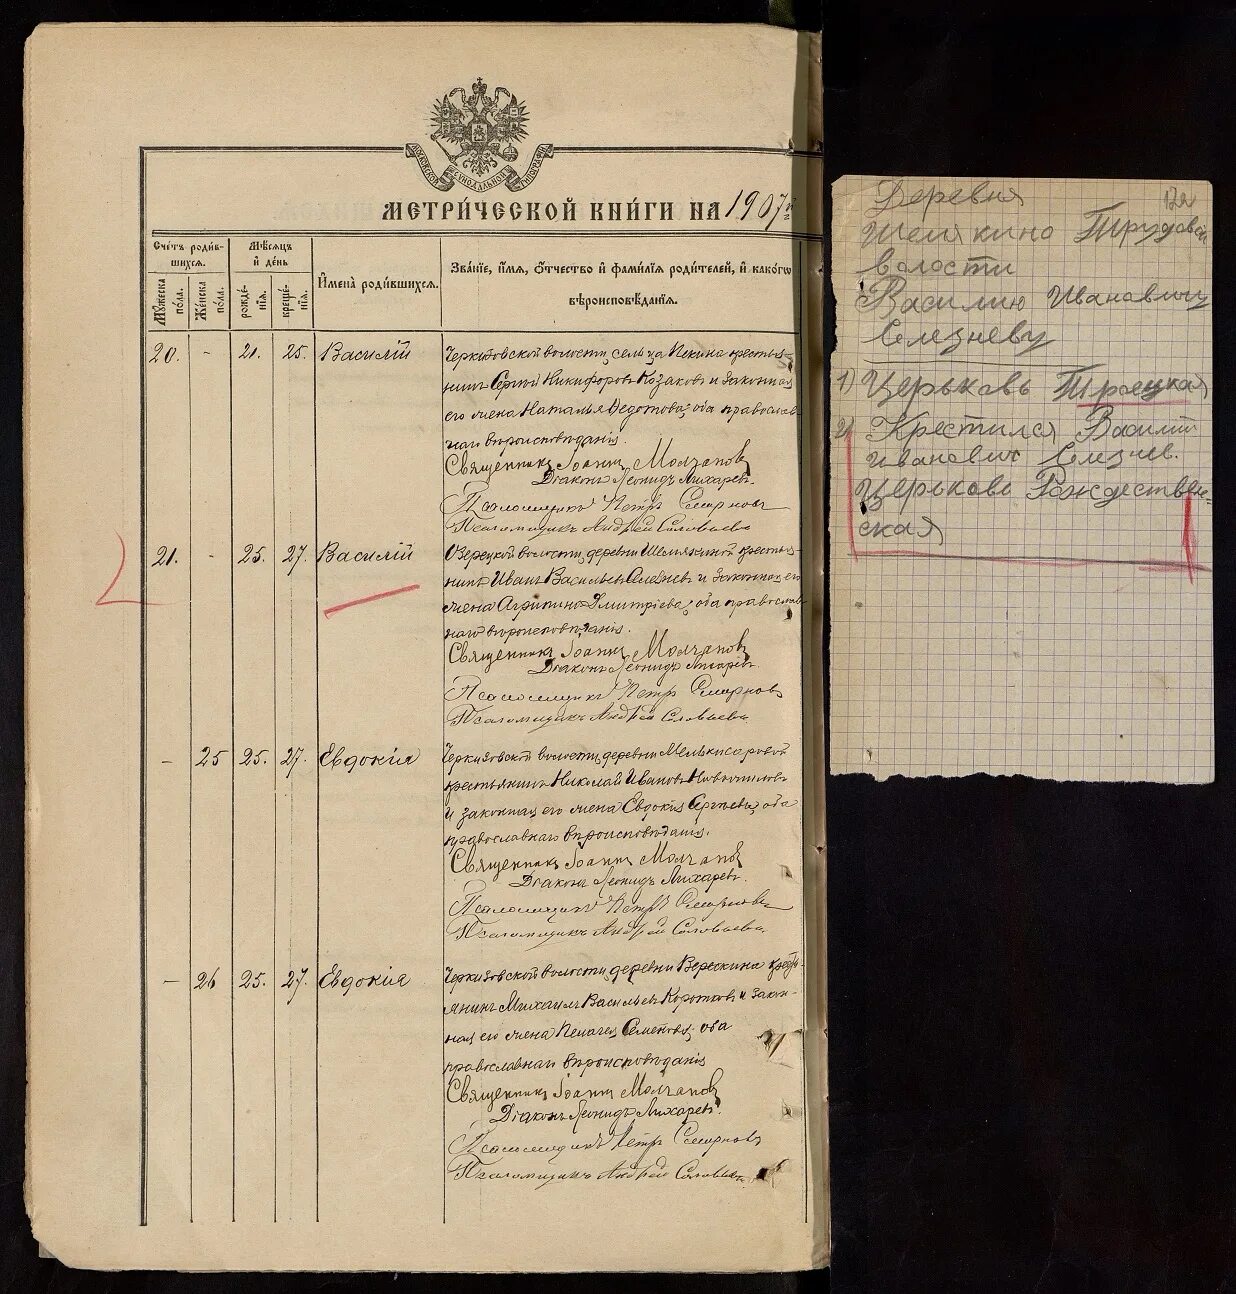 МОСКОВСКОЙ СѴНОДАЛЬНОЙ ТИПОГРАФІИ
МЕТРИ́ЧЕСКОЙ КНИ́ГИ НА 1907й
Счетъ роди́в-
шихся.
Мѣсяцъ
и де́нь
Имена̀ роди́вшихся.
Зва́нїе, и́мя, о́тчество и фами́лїя роди́телей, и како́гѡ
вѣроисповѣ́данїя.
Му́жеска по́ла.
Же́нска по́ла.
рожде́-нїя.
креще́-нїя.
20. - 21. 25. Василій
Черкизовской волости, сельца крестья-
нинъ Сергій Никифоровъ Козаковъ и законная
его жена Наталья Ѳедотова; оба православ-
наго вѣроисповѣданія.
Священникъ Іоаннъ Молчановъ
Діаконъ Леонидъ Лихаревъ.
Псаломщикъ Петръ Смирновъ
Псаломщикъ Андрей Соловьевъ
21. - 25. 27. Василій
Озерецкой волости, деревни Шемякиной крестья-
нинъ Иванъ Васильевъ Селезневъ и законная его
жена Агрипина Димитріева; оба православ-
наго вѣроисповѣданія.
Священникъ Іоаннъ Молчановъ
Діаконъ Леонидъ Лихаревъ.
Псаломщикъ Петръ Смирновъ
Псаломщикъ Андрей Соловьевъ
- 25 25. 27. Евдокія
Черкизовской волости, деревни
крестьянинъ Николай Ивановъ
и законная его жена Евдокія Сергѣева; оба
православнаго вѣроисповѣданія.
Священникъ Іоаннъ Молчановъ
Діаконъ Леонидъ Лихаревъ.
Псаломщикъ Петръ Смирновъ
Псаломщикъ Андрей Соловьевъ.
- 26 25. 27. Евдокія
Черкизовской волости, деревни Верескина крестья-
янинъ Михаилъ Васильевъ Коротковъ и закон-
ная его жена Пелагея Семенова; оба
православнаго вѣроисповѣданія
Священникъ Іоаннъ Молчановъ
Діаконъ Леонидъ Лихаревъ.
Псаломщикъ Петръ Смирновъ
Псаломщикъ Андрей Соловьевъ
Деревня
Шемякино Трудовой
волости
Василию Ивановичу
Селезневу
1) Церьковь Троецкая
2) Крестился Василий
Иванович Селезнев.
Церьково Рождествен-
ская